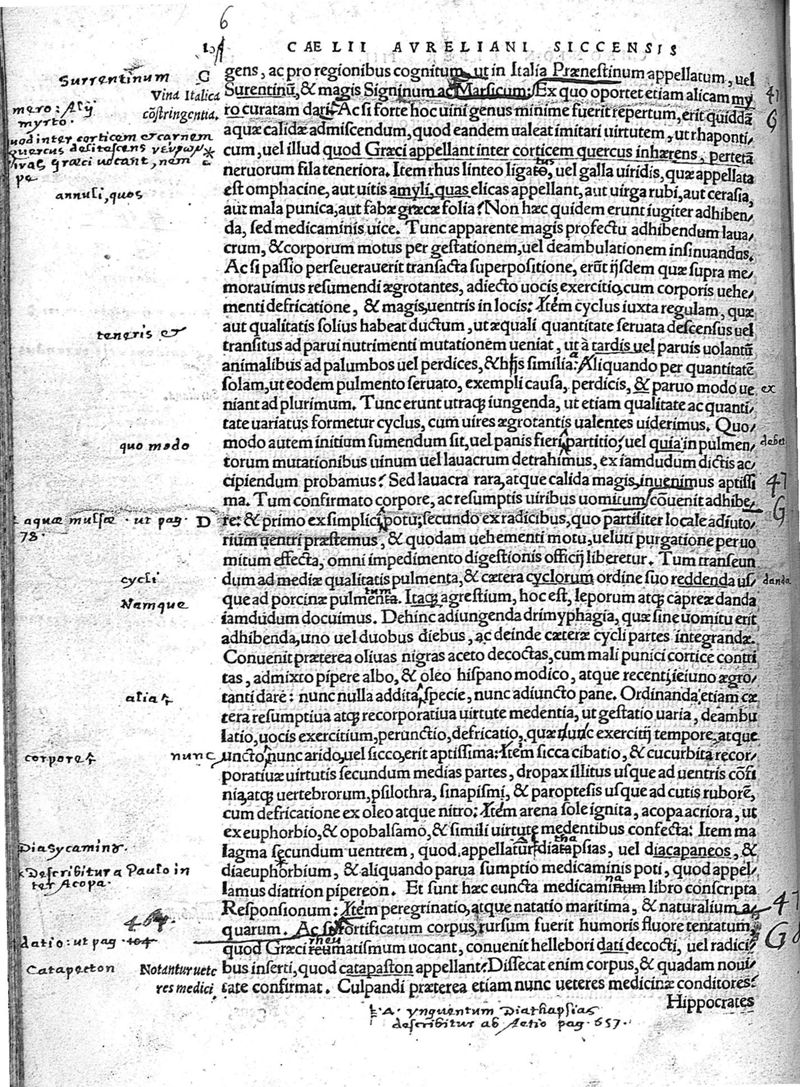 6
CAELII AVRELIANI SICCENSIS
Surrentinum
Vina Italica
cõstringentia.
mero: Aÿ
myrto.
quod inter corticem et carnem
quercus delitescens
Græci uocant, nem
pe
annuli, quos
teneris et
quo modo
aquæ mulsæ. ut pag.
78.
cycli
Namque
alia
corpore
nunc
Diasycaminr.
Describitur a Paulo in
ter Acopa.
464.
datio: ut pag. 104
Catapoton
Notantur uete
res medici
G gens, ac pro regionibus cognitum, ut in Italia Prænestinum appellatum, uel
Surentinũ, & magis Signinum ac Marsicum: Ex quo oportet etiam alicam my
ro curatam dari. Ac si forte hoc uini genus minime fuerit repertum, erit quiddã
aquæ calidæ admiscendum, quod eandem ualeat imitari uirtutem, ut rhaponti/
cum, uel illud quod Græci appellant inter corticem quercus inhærens, pertetã
neruorum fila teneriora. Item rhus linteo ligatus, uel galla uiridis, quæ appellata
est omphacine, aut uitis amyli, quas elicas appellant, aut uirga rubi, aut cerasia,
aut mala punica, aut fabæ græcæ folia? Non hæc quidem erunt iugiter adhiben/
da, sed medicaminis uice. Tunc apparente magis profectu adhibendum laua/
crum, & corporum motus per gestationem, uel deambulationem insinuandos.
Ac si passio perseuerauerit transacta superpositione, erũt ijsdem quæ supra me/
morauimus resumendi ægrotantes, adiecto uocis exercitio, cum corporis uehe/
menti defricatione, & magis, uentris in locis: Item cyclus iuxta regulam, quæ
aut qualitatis solius habeat ductum, ut æquali quantitate seruata descensus uel
transitus ad parui nutrimenti mutationem ueniat, ut à tardis uel paruis uolantũ
animalibus ad palumbos uel perdices, & hijs similia: Aliquando per quantitatẽ
solam, ut eodem pulmento seruato, exempli causa, perdicis, & paruo modo ue ex
niant ad plurimum. Tunc erunt utraq; iungenda, ut etiam qualitate ac quanti/
tate uariatus formetur cyclus, cum uires ægrotantis ualentes uiderimus. Quo/
modo autem initium sumendum sit, uel panis fieri partitio, uel quia in pulmen/ debet
torum mutationibus uinum uel lauacrum detrahimus, ex iamdudum dictis ac/
cipiendum probamus? Sed lauacra rara, atque calida magis, inuenimus aptissi
ma. Tum confirmato corpore, ac resumptis uiribus uomitum cõuenit adhibe/
D re: & primo ex simplici potu, secundo ex radicibus, quo partiliter locale adiuto/
rium uentri præstemus, & quodam uehementi motu, ueluti purgatione per uo
mitum effecta, omni impedimento digestionis officij liberetur. Tum transeun
dum ad mediæ qualitatis pulmenta, & cætera cyclorum ordine suo reddenda us/ danda
que ad porcinæ pulmenta. Itaq; agrestium, hoc est, leporum atq; capreæ danda
iamdudum docuimus. Dehinc adiungenda drimyphagia, quæ sine uomitu erit
adhibenda, uno uel duobus diebus, ac deinde cæteræ cycli partes integrandæ.
Conuenit præterea oliuas nigras aceto decoctas, cum mali punici cortice contri
tas, admixto pipere albo, & oleo hispano modico, atque recenti, ieiuno ægro/
tanti dare: nunc nulla addita specie, nunc adiuncto pane. Ordinanda etiam cæ
tera resumptiua atq; recorporatiua uirtute medentia, ut gestatio uaria, deambu
latio, uocis exercitium, perunctio, defricatio, quæ nunc exercitij tempore, atque
uncto, nunc arido, uel sicco, erit aptissima: Item sicca cibatio, & cucurbita recor/
poratiuæ uirtutis secundum medias partes, dropax illitus usque ad uentris cõfi
nia, atq; uertebrorum, psilothra, sinapismi, & paroptesis usque ad cutis ruborẽ,
cum defricatione ex oleo atque nitro: Item arena sole ignita, acopa acriora, ut
ex euphorbio, & opobalsamo, & simili uirtute medentibus confecta: Item ma
lagma secundum uentrem, quod appellatur diatapsias, uel diacapaneos, &
diaeuphorbium, & aliquando parua sumptio medicaminis poti, quod appel/
lamus diatrion pipereon. Et sunt hæc cuncta medicaminum libro conscripta
Responsionum: Item peregrinatio, atque natatio maritima, & naturalium a/
quarum. Ac si fortificatum corpus, rursum fuerit humoris fluore tentatum,
quod Græci reumatismum uocant, conuenit hellebori dati decocti, uel radici/
bus inserti, quod catapaston appellant: Dissecat enim corpus, & quadam noui/
tate confirmat. Culpandi præterea etiam nunc ueteres medicinæ conditores:
Hippocrates
A. vnguentum Diathapsias
describitur ab Aetio pag. 657.